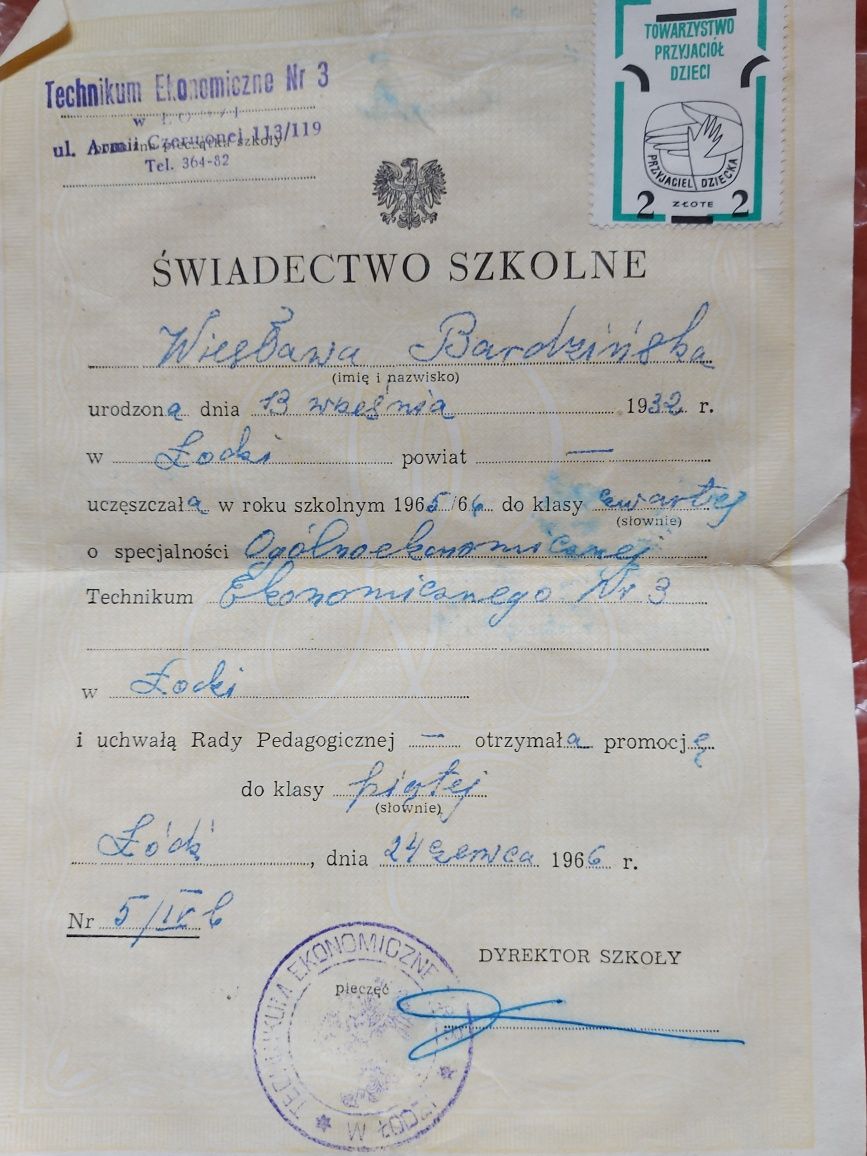 TOWARZYSTWO
PRZYJACIÓŁ
DZIECI
PRZYJACIEL DZIECKA
2 ZŁOTE 2
Technikum Ekonomiczne Nr 3
w
ul. Armii Czerwonej 113/119
pieczątka szkoły
Tel. 364-82
ŚWIADECTWO SZKOLNE
Wiesława Bardzińska
(imię i nazwisko)
urodzona dnia 13 września 1932 r.
w Łodzi powiat —
uczęszczała w roku szkolnym 1965/66 do klasy czwartej
(słownie)
o specjalności Ogólnoekonomicznej
Technikum Ekonomicznego Nr 3
w Łodzi
i uchwałą Rady Pedagogicznej — otrzymała promocję
do klasy piątej
(słownie)
Łódź, dnia 24 czerwca 1966 r.
Nr 5/IV b
DYREKTOR SZKOŁY
pieczęć
TECHNIKUM EKONOMICZNE
W ŁODZI